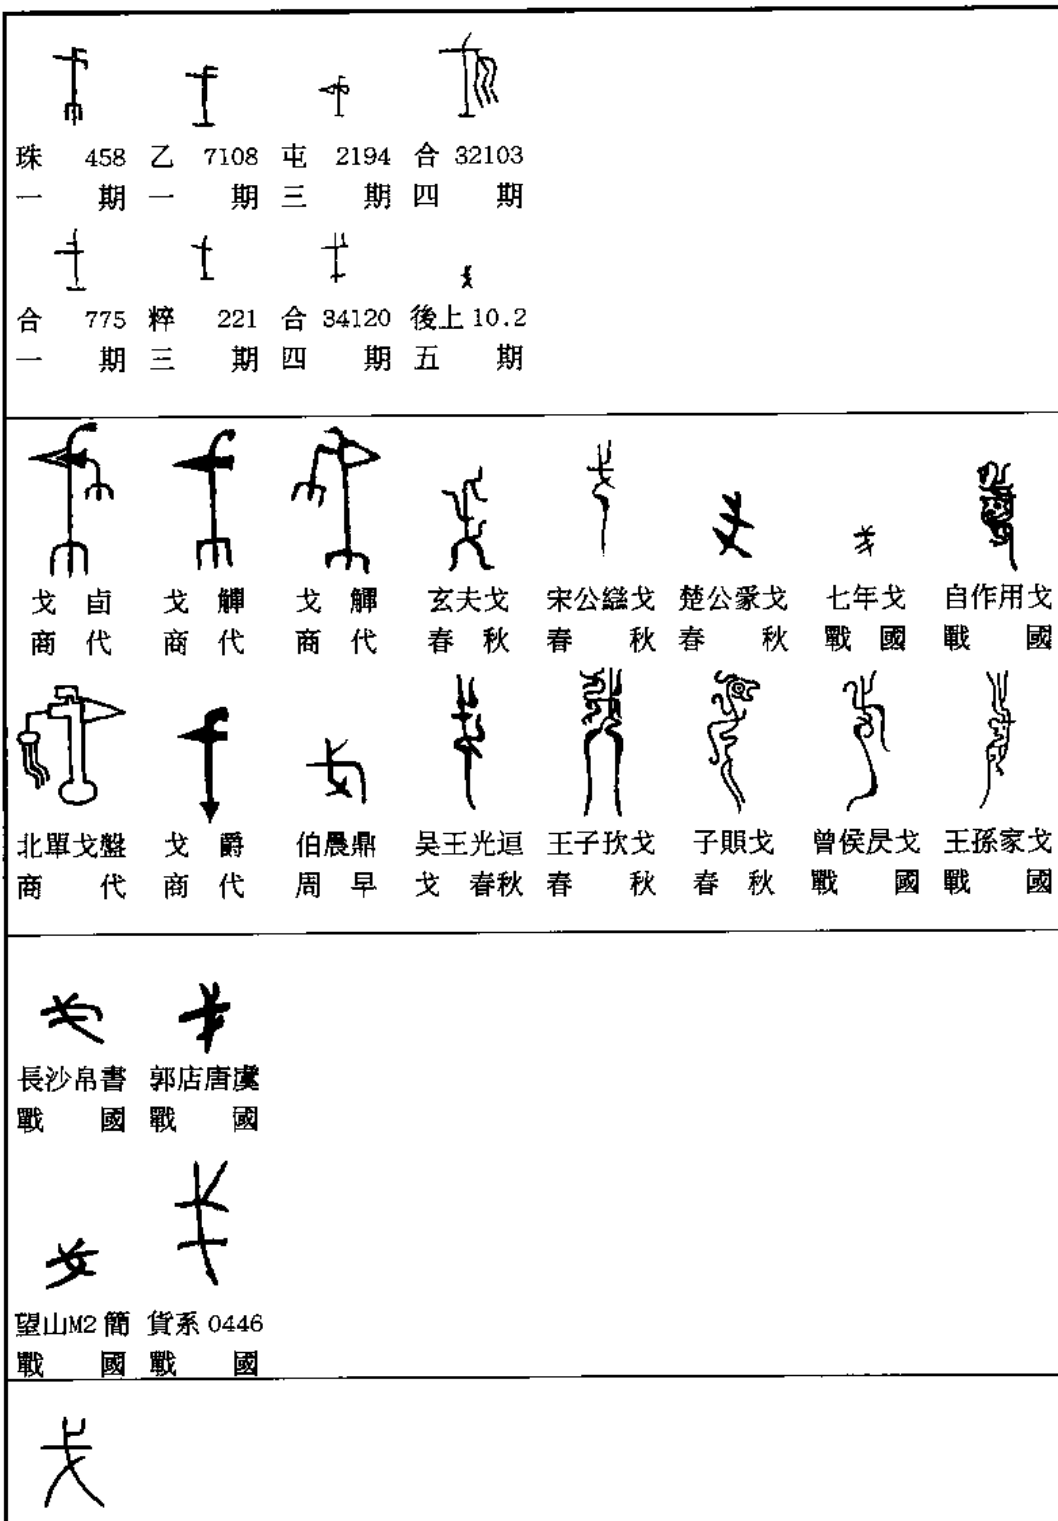 珠 458 乙 7108 屯 2194 合 32103
一期 一期 三期 四期
合 775 粹 221 合 34120 後上 10.2
一期 三期 四期 五期
戈卣 戈觶 戈觶 玄夫戈 宋公䜌戈 楚公豪戈 七年戈 自作用戈
商代 商代 商代 春秋 春秋 春秋 戰國 戰國
北單戈盤 戈爵 伯晨鼎 吴王光逗 王子㺬戈 子䝨戈 曾侯昃戈 王孫家戈
商代 商代 周早 戈 春秋 春秋 春秋 戰國 戰國
長沙帛書 郭店唐虞
戰國 戰國
望山M2簡 貨系 0446
戰國 戰國
戈